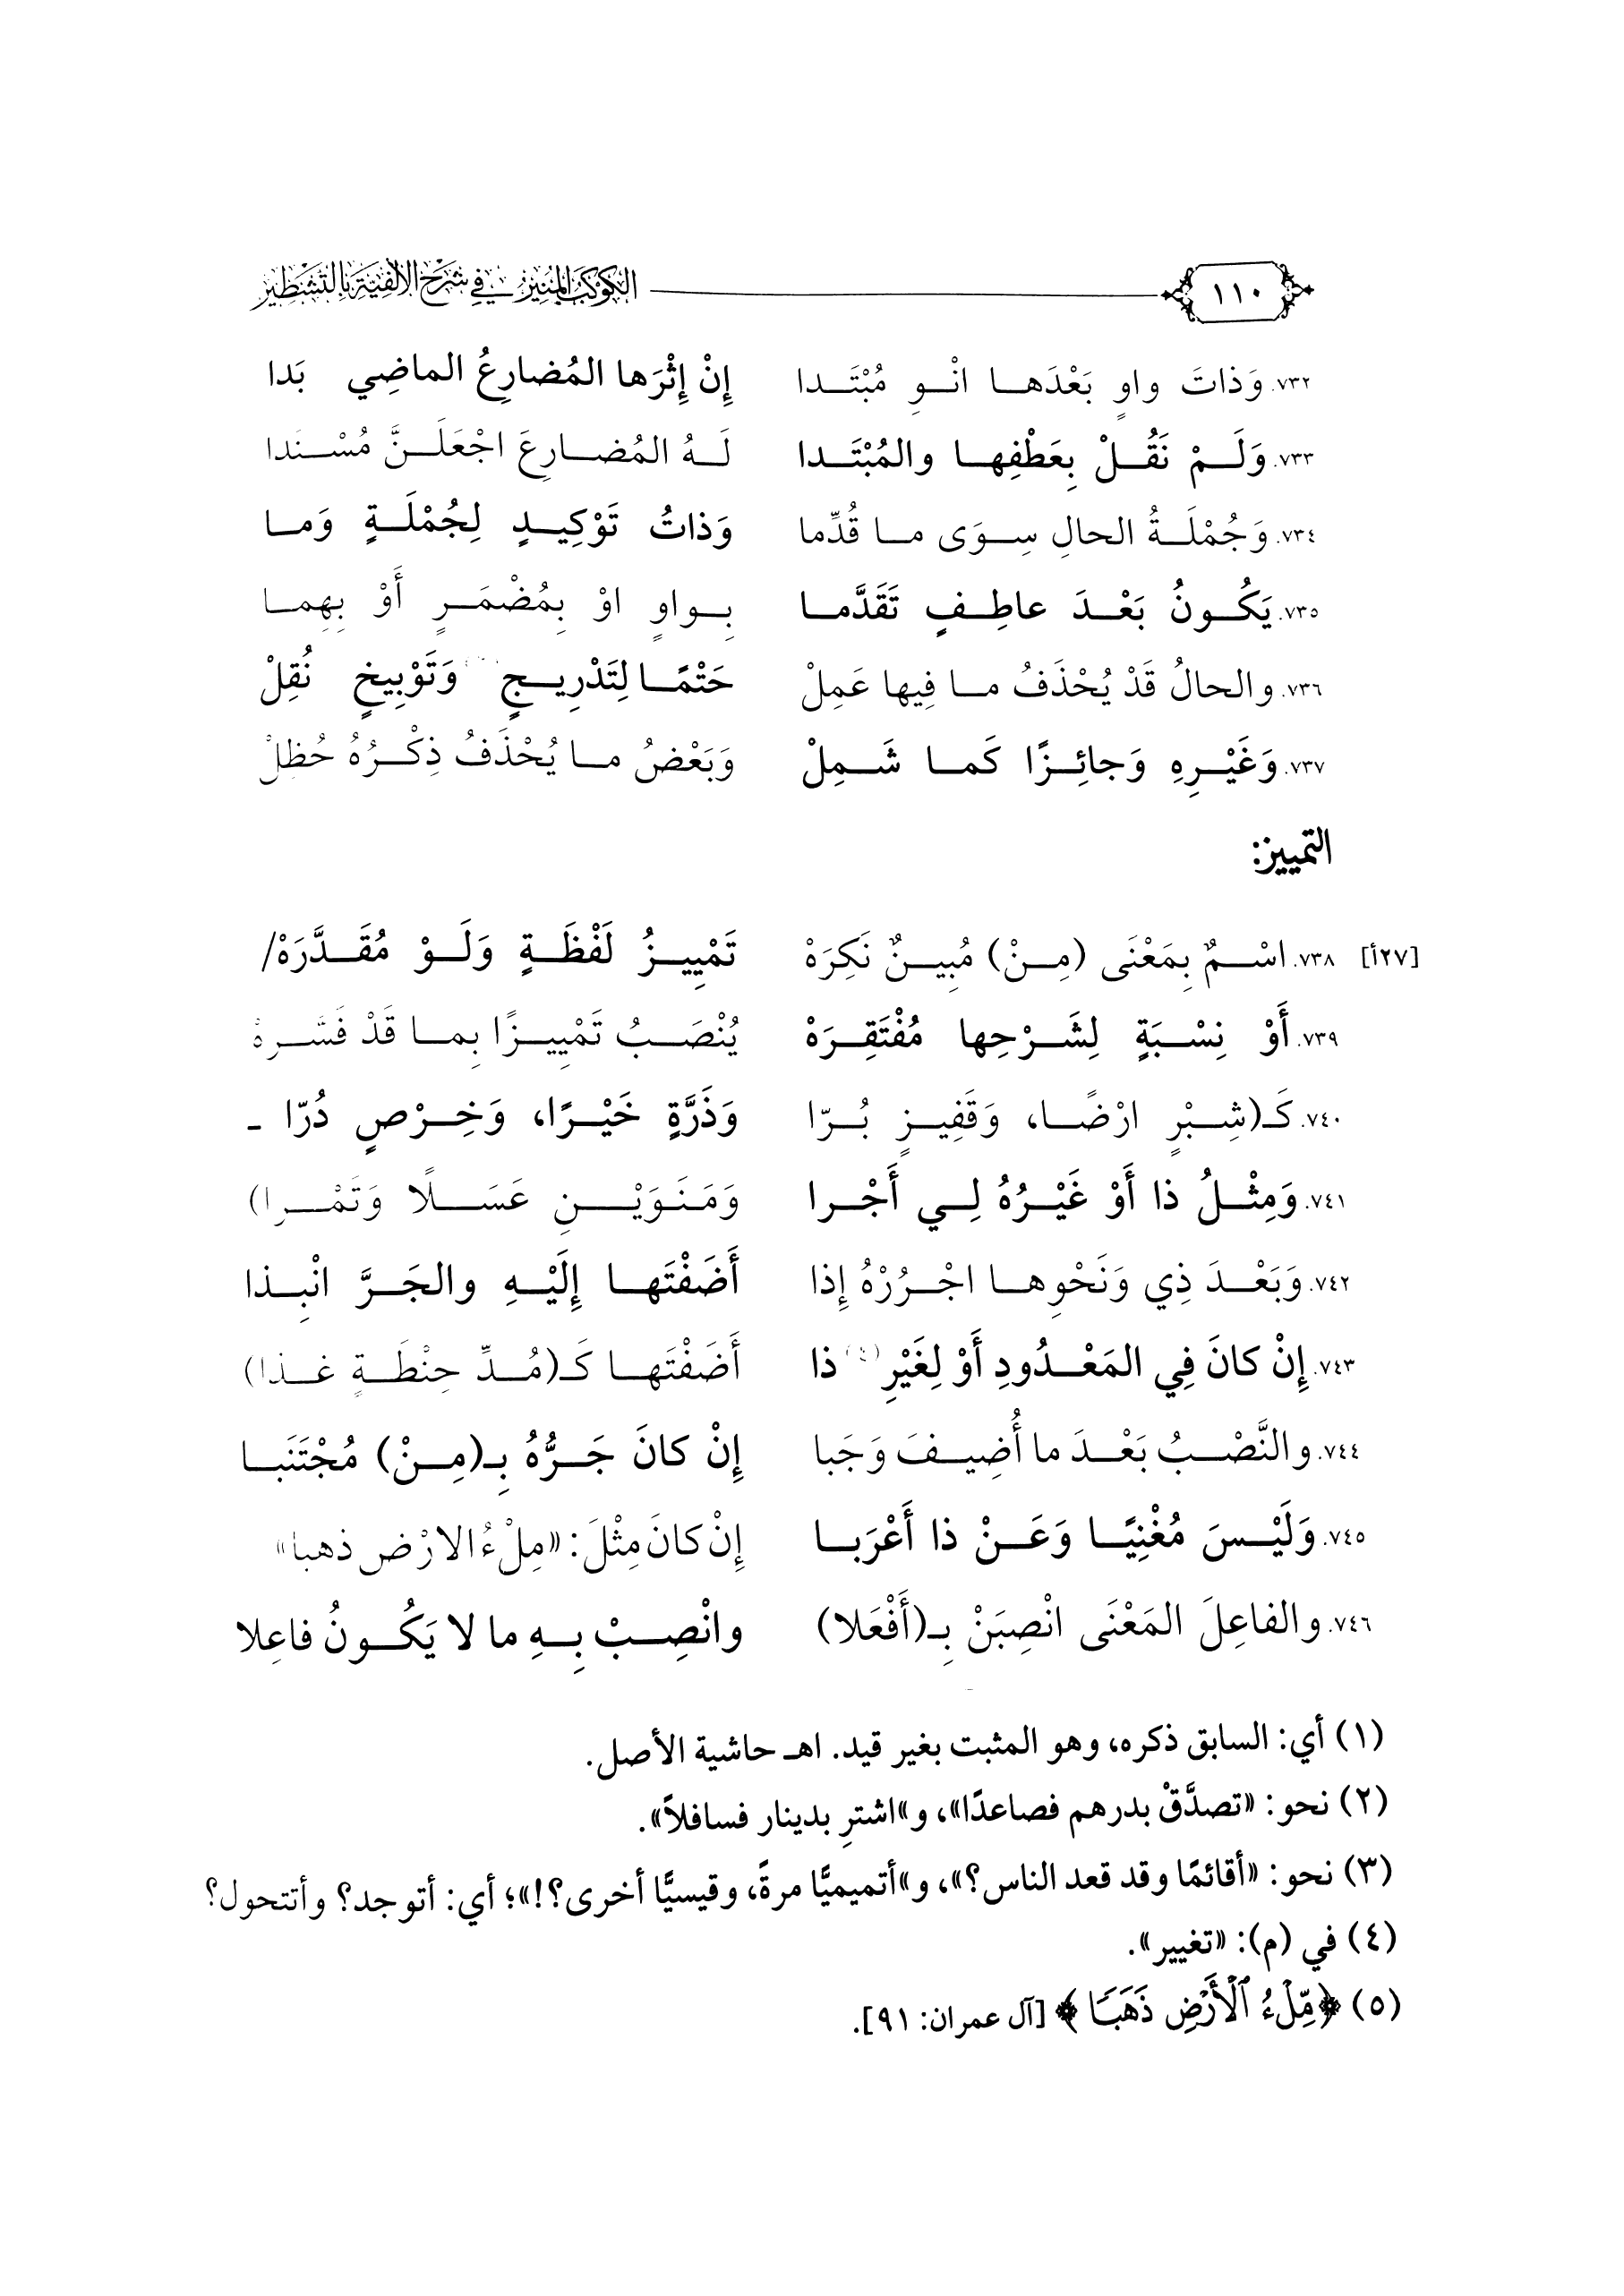 ١١٠ الكوكب المنير في شرح الألفية بالتشطير
٧٣٢. وَذاتَ واوٍ بَعْدَهـا انْـوِ مُبْتَـدا إِنْ إِثْرَها المُضارِعُ الماضِي بَدا
٧٣٣. وَلَـمْ نَقُـلْ بِعَطْفِهـا والمُبْتَـدا لَـهُ المُضـارِعَ اجْعَلَـنَّ مُسْـنَدا
٧٣٤. وَجُمْلَـةُ الحالِ سِـوَى مـا قُدِّما وَذاتُ تَوْكِيـدٍ لِجُمْلَـةٍ وَمـا
٧٣٥. يَكُـونُ بَعْـدَ عاطِـفٍ تَقَدَّمـا بِـواوٍ اوْ بِمُضْمَـرٍ أَوْ بِهِمـا
٧٣٦. والحالُ قَدْ يُحْذَفُ مـا فِيها عَمِلْ حَتْمًـا لِتَدْرِيـجٍ وَتَوْبِيخٍ نُقِلْ
٧٣٧. وَغَيْـرِهِ وَجائِـزًا كَمـا شَـمِلْ وَبَعْضُ مـا يُحْذَفُ ذِكْـرُهُ حُظِلْ
التمييز:
[٢٧أ] ٧٣٨. اسْـمٌ بِمَعْنَى (مِـنْ) مُبِيـنٌ نَكِرَهْ تَمْيِيـزُ لَفْظَـةٍ وَلَـوْ مُقَـدَّرَهْ/
٧٣٩. أَوْ نِسْـبَةٍ لِشَـرْحِها مُفْتَقِـرَهْ يُنْصَـبُ تَمْيِيـزًا بِمـا قَدْ فَسَّـرهْ
٧٤٠. كَـ(شِـبْرٍ ارْضًـا، وَقَفِيـزٍ بُـرّا وَذَرَّةٍ خَيْـرًا، وَخِـرْصٍ دُرّا -
٧٤١. وَمِثْـلُ ذا أَوْ غَيْـرُهُ لِـي أَجْـرا وَمَنَوَيْـنِ عَسَـلًا وَتَمْـرا)
٧٤٢. وَبَعْـدَ ذِي وَنَحْوِهـا اجْـرُرْهُ إِذا أَضَفْتَهـا إِلَيْـهِ والجَـرَّ انْبِـذا
٧٤٣. إِنْ كانَ فِي المَعْـدُودِ أَوْ لِغَيْرِ (٤) ذا أَضَفْتَهـا كَـ(مُـدِّ حِنْطَـةٍ غـذا)
٧٤٤. والنَّصْـبُ بَعْـدَ ما أُضِيـفَ وَجَبا إِنْ كانَ جَـرُّهُ بِـ(مِـنْ) مُجْتَنَبـا
٧٤٥. وَلَيْـسَ مُغْنِيًـا وَعَـنْ ذا أَعْرَبـا إِنْ كانَ مِثْلَ: «مِلْءُ الارْضِ ذهبا»
٧٤٦. والفاعِلَ المَعْنَى انْصِبَنْ بِـ(أَفْعَلا) وانْصِـبْ بِـهِ ما لا يَكُـونُ فاعِلا
(١) أي: السابق ذكره، وهو المثبت بغير قيد. اهـ حاشية الأصل.
(٢) نحو: «تصدَّقْ بدرهم فصاعدًا»، و»اشترِ بدينار فسافلاً».
(٣) نحو: «أقائمًا وقد قعد الناس؟»، و»أتميميًّا مرةً، وقيسيًّا أخرى؟!»؛ أي: أتوجد؟ وأتتحول؟
(٤) في (م): «تغيير».
(٥) ﴿مِّلْءُ ٱلْأَرْضِ ذَهَبًا﴾ [آل عمران: ٩١].